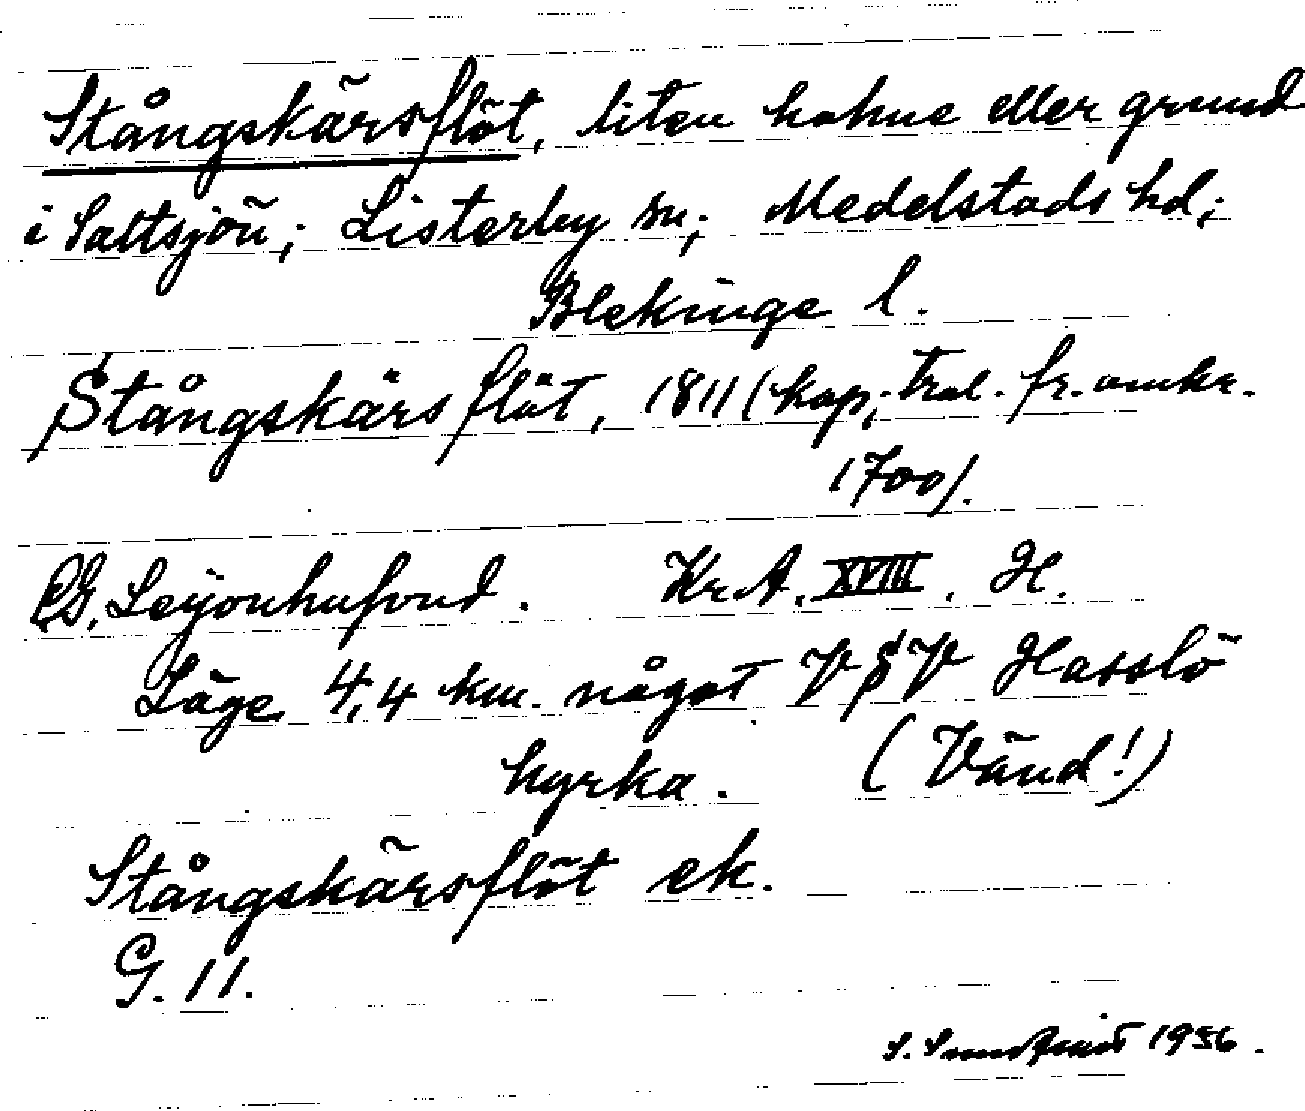 Stångskärsflöt, liten holme eller grund
i Saltsjön; Listerby sn; Medelstads hd;
Blekinge l.
Stångskärs flöt, 1811 (kop; tral. fr. omkr.
1700).
C.G. Leijonhufvud. Kr.A. XVIII. H.
Läge 4,4 km. något V§V Hasslö
kyrka. (Vänd!)
Stångskärsflöt ek.
G. 11.
S. 1956.